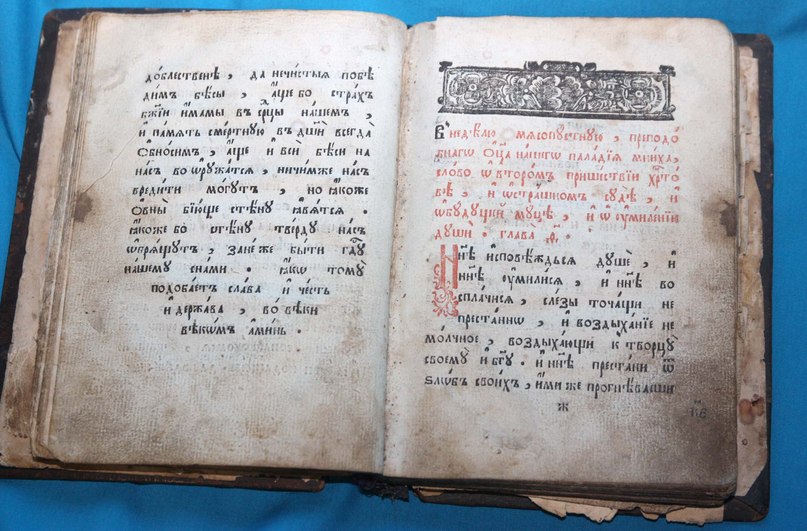 до́блественѣ , да нечи́стыя побѣ
ди́мъ бѣ́сы , а҆́ще бо стра́хъ
бж҃їи и҆́мамы въ ср҃цы на́шемъ ,
и҆ па́мять сме́ртную въ дш҃и́ всегда̀
ѻ҆бно́симъ , а҆́ще и҆ всѝ бѣ́си на
на́съ во ѡ҆ружа́тся , ничи́мже на́съ
вреди́ти могу́тъ , но ꙗ҆́коже
ѻ҆вны̀ бїю́ще стѣ́ну ꙗ҆вя́тся .
ꙗ҆́коже бо стѣ́ну тве́рду на́съ
ѡ҆бря́щутъ , зане́же бы́ти гд҇у
на́шему сна́ми . ꙗ҆́кѡ тому̀
подоба́етъ сла́ва и҆ че́сть
и҆ держа́ва , во вѣ́ки
вѣкѡ́мъ а҆ми́нь .
В недѣ́лю мясопу́стную , преподо́
бнагѡ ѻ҆ц҃а̀ на́шегѡ пала́дїя мни́ха ,
сло́во ѡ҆ второ́мъ прише́ствїи хр҇то́
вѣ , и҆ ѡ҆ стра́шномъ судѣ̀ , и҆
ѡ҆ бу́дущей му́цѣ , и҆ ѡ҆ ᲂу҆миле́нїи
душѝ . глава̀
Нн҃ѣ и҆сповѣ́ждься душѐ , и҆
нн҃ѣ ᲂу҆мили́ся , и҆ нн҃ѣ во
спла́чися , сле́зы точа́щи не
преста́ннѡ , и҆ воздыха́нїе не
мо́лчное , воздыха́ющи к творцу̀
своему̀ и҆ бг҃у . и҆ нн҃ѣ преста́ни ѿ
ѕло́бъ свои́хъ , и҆́ми же прогнѣ́вавши
ж